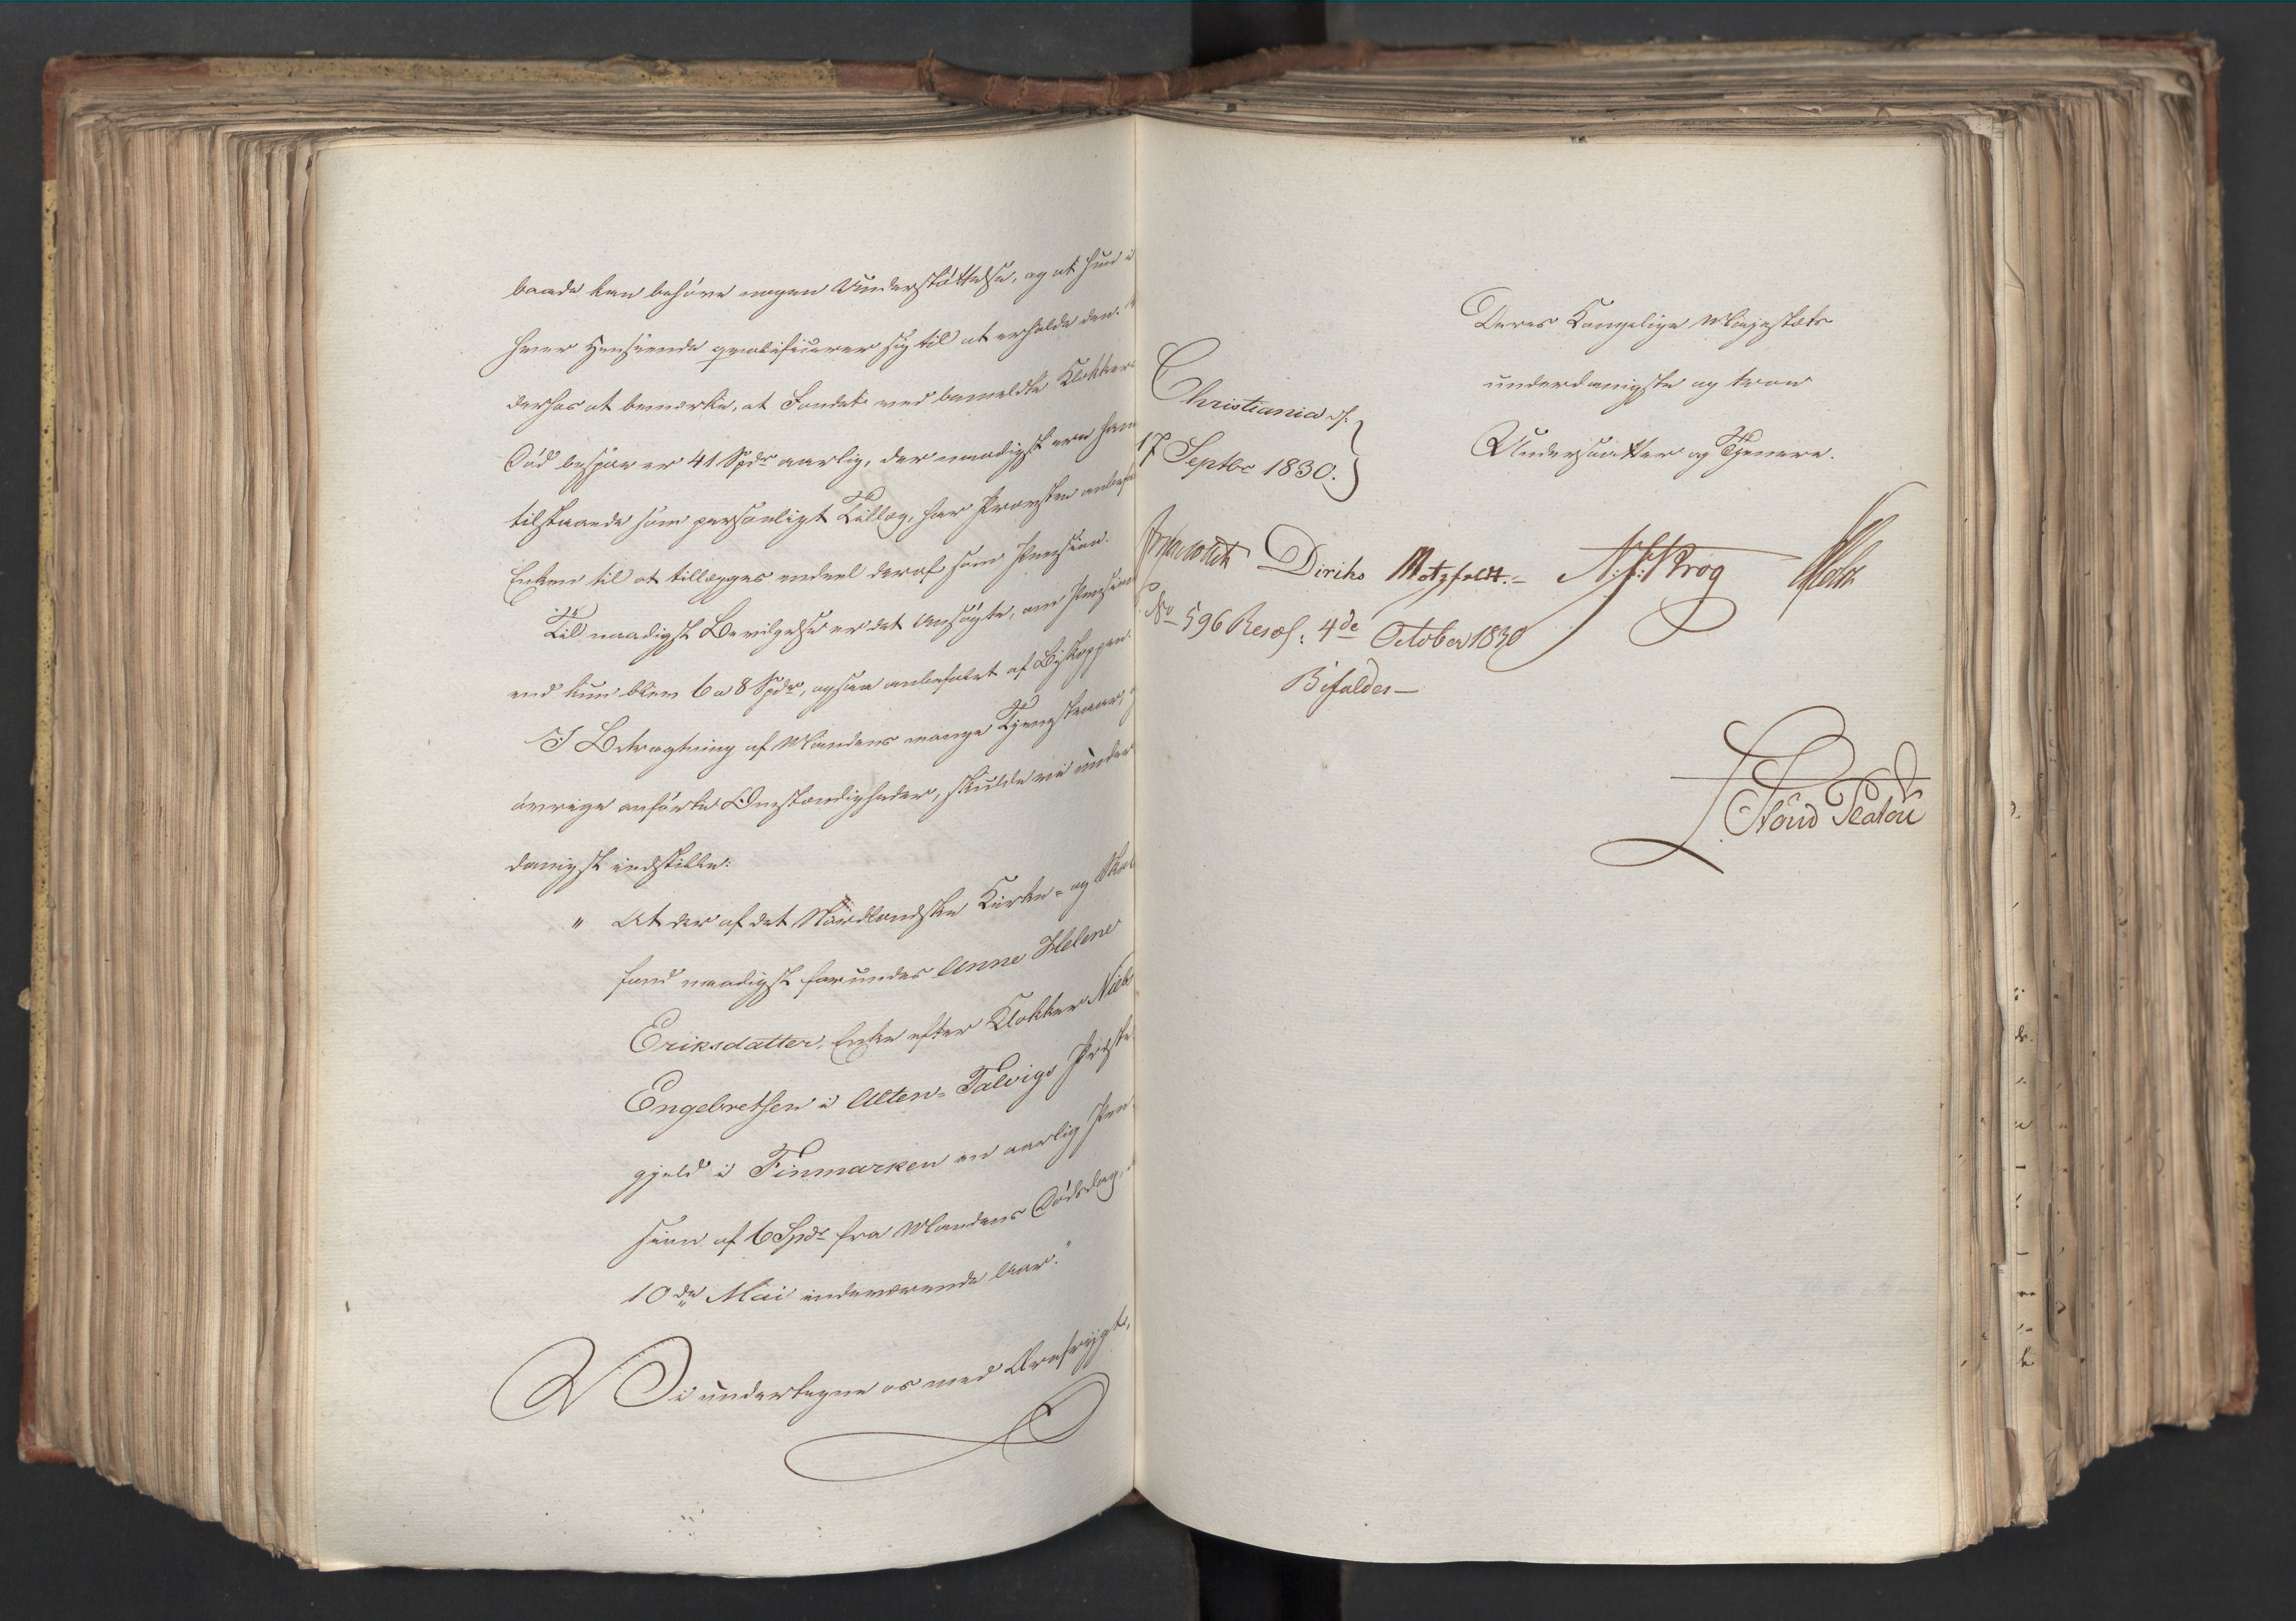 baade kan behöve nogen Understöttelse, og at hun i
hver Henseende qvalificerer sig til at erholde den.
derhos at bemærke, at Fondet ved bemeldte Klokkers
Död besparer 41 Spdr aarlig, der naadigst vare ham
tilstaaede som personligt Tillæg, har Provsten anbefa
Enken til at tillægges endeel deraf som Pension.
Til naadigst Bevilgelse er det Ansögte, om Pensionen
end kun blev 6 a 8 Spdr, ogsaa anbefalet af Biskoppen.
I Betragtning af Mandens mange Tjenesteaar, og
övrige anförte Omstændigheder, skulde vi under
danigst indstille:
" At der af det Nordlandske Kirke- og Skole
fond naadigst forundes Anne Helene
Eriksdatter, Enke efter Klokker Niels
Engebretsen i Alten-Talvigs Præste
gjeld i Finmarken en aarlig Pen
sion af 6 Spdr fra Mandens Dödsdag,
10de Mai indeværende Aar."
Vi undertegne os med Ærefrygt,
Deres Kongelige Majestæts
underdanigste og troe
Undersaatter og Tjenere.
Christiania d.
17 Septbr 1830.
Diriks Motzfeldt. Krog Holst
No 596 Resol: 4de October 1830
Bifaldes
Platou